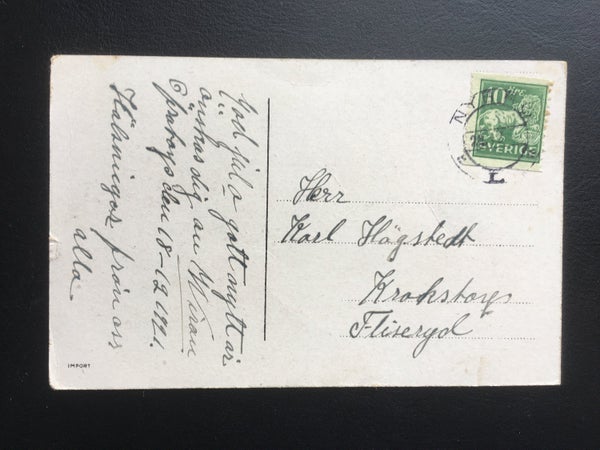 God jul o gott nytt år
önskas dig av
den 18-12 1921.
Hälsningar från oss
alla.
Herr
Karl Högstedt
Krokstorp
Fliseryd
10 ÖRE
SVERIGE
NY
L
IMPORT